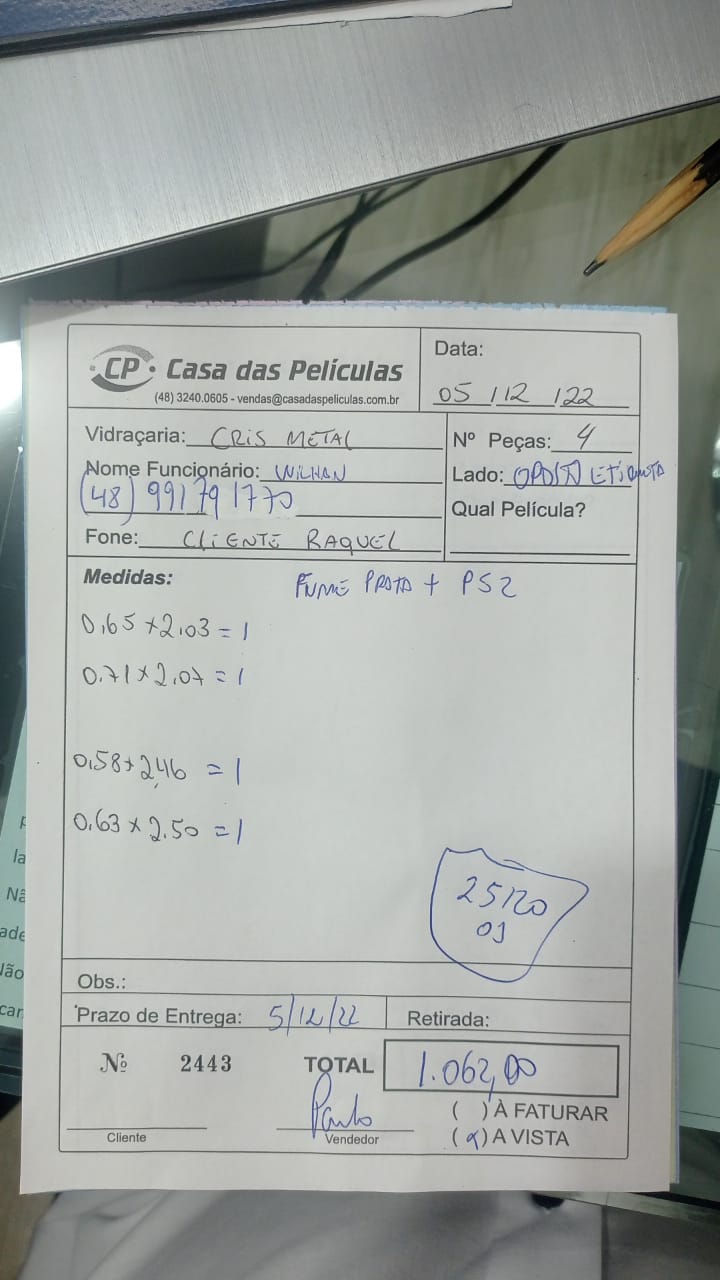 CP Casa das Películas
(48) 3240.0605 - vendas@casadaspeliculas.com.br
Data:
05/12/22
Vidraçaria: CRIS METAL
Nome Funcionário: WILHAN
(48) 991791770
Fone: CLIENTE RAQUEL
Nº Peças: 4
Lado: OPOSTA ETIQUETA
Qual Película?
Medidas: FUME PRATA + PS2
0,65 x 2.03 = 1
0.71 x 2.07 = 1
0,58 x 2,46 = 1
0.63 x 2.50 = 1
25120
Obs.:
Prazo de Entrega: 5/12/22
Retirada:
Nº 2443
TOTAL 1.062,00
Paulo
( ) À FATURAR
(x) A VISTA
Cliente
Vendedor
la
Nã
ade
Não
car